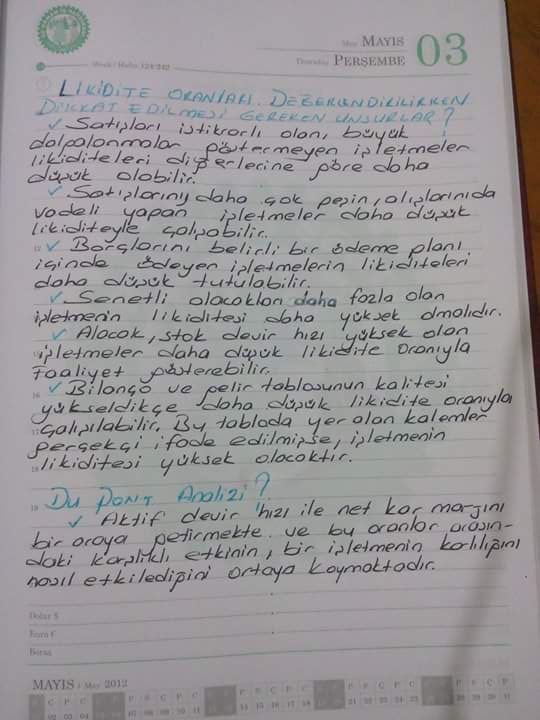 May MAYIS 03
Thursday PERŞEMBE
Week / Hafta 124-242
LİKİDİTE ORANLARI DEĞERLENDİRİLİRKEN
DİKKAT EDİLMESİ GEREKEN UNSURLAR?
✓ Satışları istikrarlı olan, büyük
dalgalanmalar göstermeyen işletmeler
likiditeleri diğerlerine göre daha
düşük olabilir.
✓ Satışlarını daha çok peşin, alışlarınıda
vadeli yapan işletmeler daha düşük
likiditeyle çalışabilir.
12 ✓ Borçlarını belirli bir ödeme planı
içinde ödeyen işletmelerin likiditeleri
daha düşük tutulabilir.
✓ Senetli alacakları daha fazla olan
işletmenin likiditesi daha yüksek olmalıdır.
✓ Alacak, stok devir hızı yüksek olan
işletmeler daha düşük likidite oranıyla
faaliyet gösterebilir.
16 ✓ Bilanço ve gelir tablosunun kalitesi
yükseldikçe daha düşük likidite oranıyla
17 çalışılabilir. Bu tabloda yer alan kalemler
gerçekçi ifade edilmişse, işletmenin
18 likiditesi yüksek olacaktır.
19 Du Pont Analizi?
✓ Aktif devir hızı ile net kar marjını
bir araya getirmekte ve bu oranlar arasın-
daki karşılıklı etkinin, bir işletmenin karlılığını
nasıl etkilediğini ortaya koymaktadır.
Dolar $
Euro €
Borsa
MAYIS / May 2012